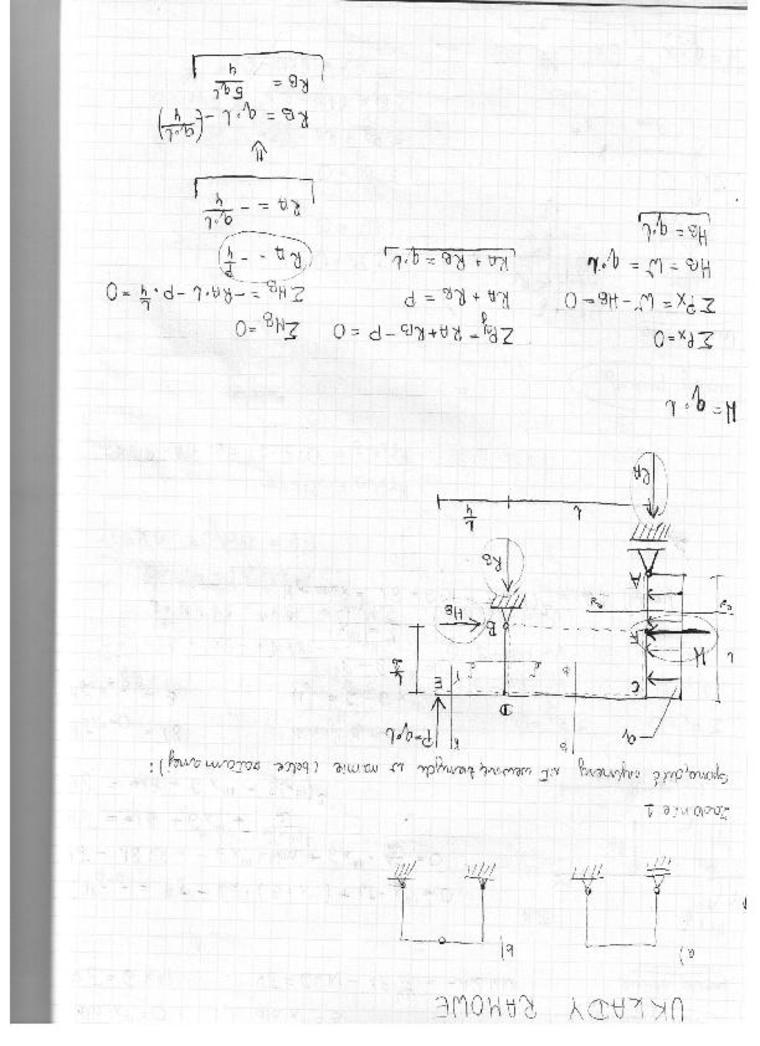 UKŁADY RAMOWE
a)
b)
Zadanie 1
Sporządzić wykresy sił wewnętrznych w ramie (belce załamanej):
q
P=q·L
C
D
E
W
K
L
L/2
B
HB
A
RB
RA
L
L/4
W = q·L
ΣPx=0
ΣPx = W-HB=0
HB = W = q·L
HB = q·L
ΣPy=RA+RB-P=0
RA+RB = P
RA+RB = q·L
ΣMB=0
ΣMB=-RA·L-P·L/4=0
RA = -P/4
RA = -q·L/4
⇓
RB = q·L-(-q·L/4)
RB = 5qL/4